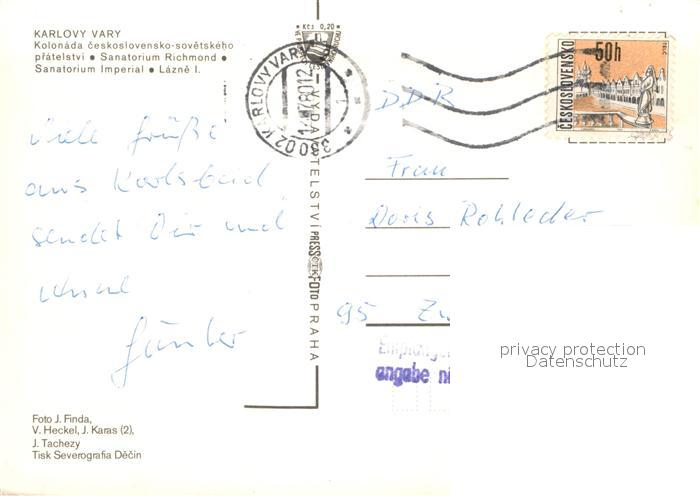 KARLOVY VARY
Kolonáda československo-sovětského
přátelství • Sanatorium Richmond •
Sanatorium Imperial • Lázně I.
Kčs 0,20
360 02 KARLOVY VARY 1
ČESKOSLOVENSKO
50h
TELČ
viele Grüße
aus Karlsbad
sendet Dir und
Günter
PRESSFOTO PRAHA
DDR
Frau
Doris Rohleder
95 Zw
Empfänger
angabe ni
privacy protection
Datenschutz
Foto J. Finda,
V. Heckel, J. Karas (2),
J. Tachezy
Tisk Severografia Děčín